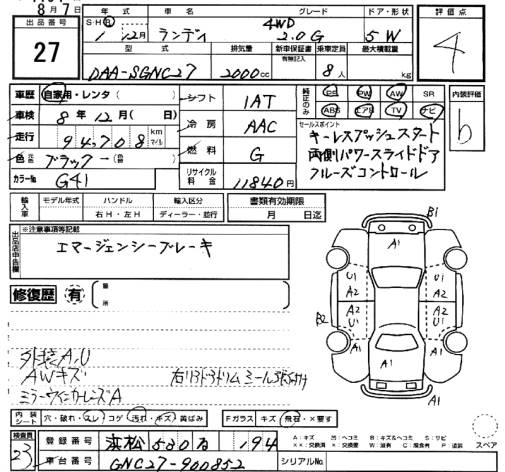 8月7日
出品番号 27
年式 S・H・R 1年12月
車名 ランディ
グレード 4WD 2.0G
ドア・形状 5W
評価点 4
型式 DAA-SGNC27
排気量 2000cc
新車保証書 有無記入
乗車定員 8人
最大積載量 kg
車歴 自家用・レンタ( )
車検 8年12月( 日)
走行 94,708 km マイル
色 元色 ブラック→( 色替 )
カラーNo G41
シフト 1AT
冷房 AAC
燃料 G
リサイクル料金 11840円
純正のみ PS PW AW SR
ABS エアB TV ナビ
内装評価 b
セールスポイント
キーレスプッシュスタート
両側パワースライドドア
クルーズコントロール
輸入車 モデル年式 ハンドル 右H・左H 輸入区分 ディーラー・並行
書類有効期限 月 日迄
出品店申告欄 ※注意事項等記載
エマージェンシーブレーキ
修復歴 有 箇所
外装A,U
AWキズ
ミラーウィンカーレンズA
B1
A1
U1 A2 A2 U1
A1
B2
U1 A2 A2 U1
A1
A1
内装 シート 穴・破れ・スレ コゲ 汚れ・キズ 黄ばみ
Fガラス キズ 飛石・×要す
スペア
検査員 23
登録番号 浜松 530 る 194
車台番号 GNC27-900852
シリアルNo